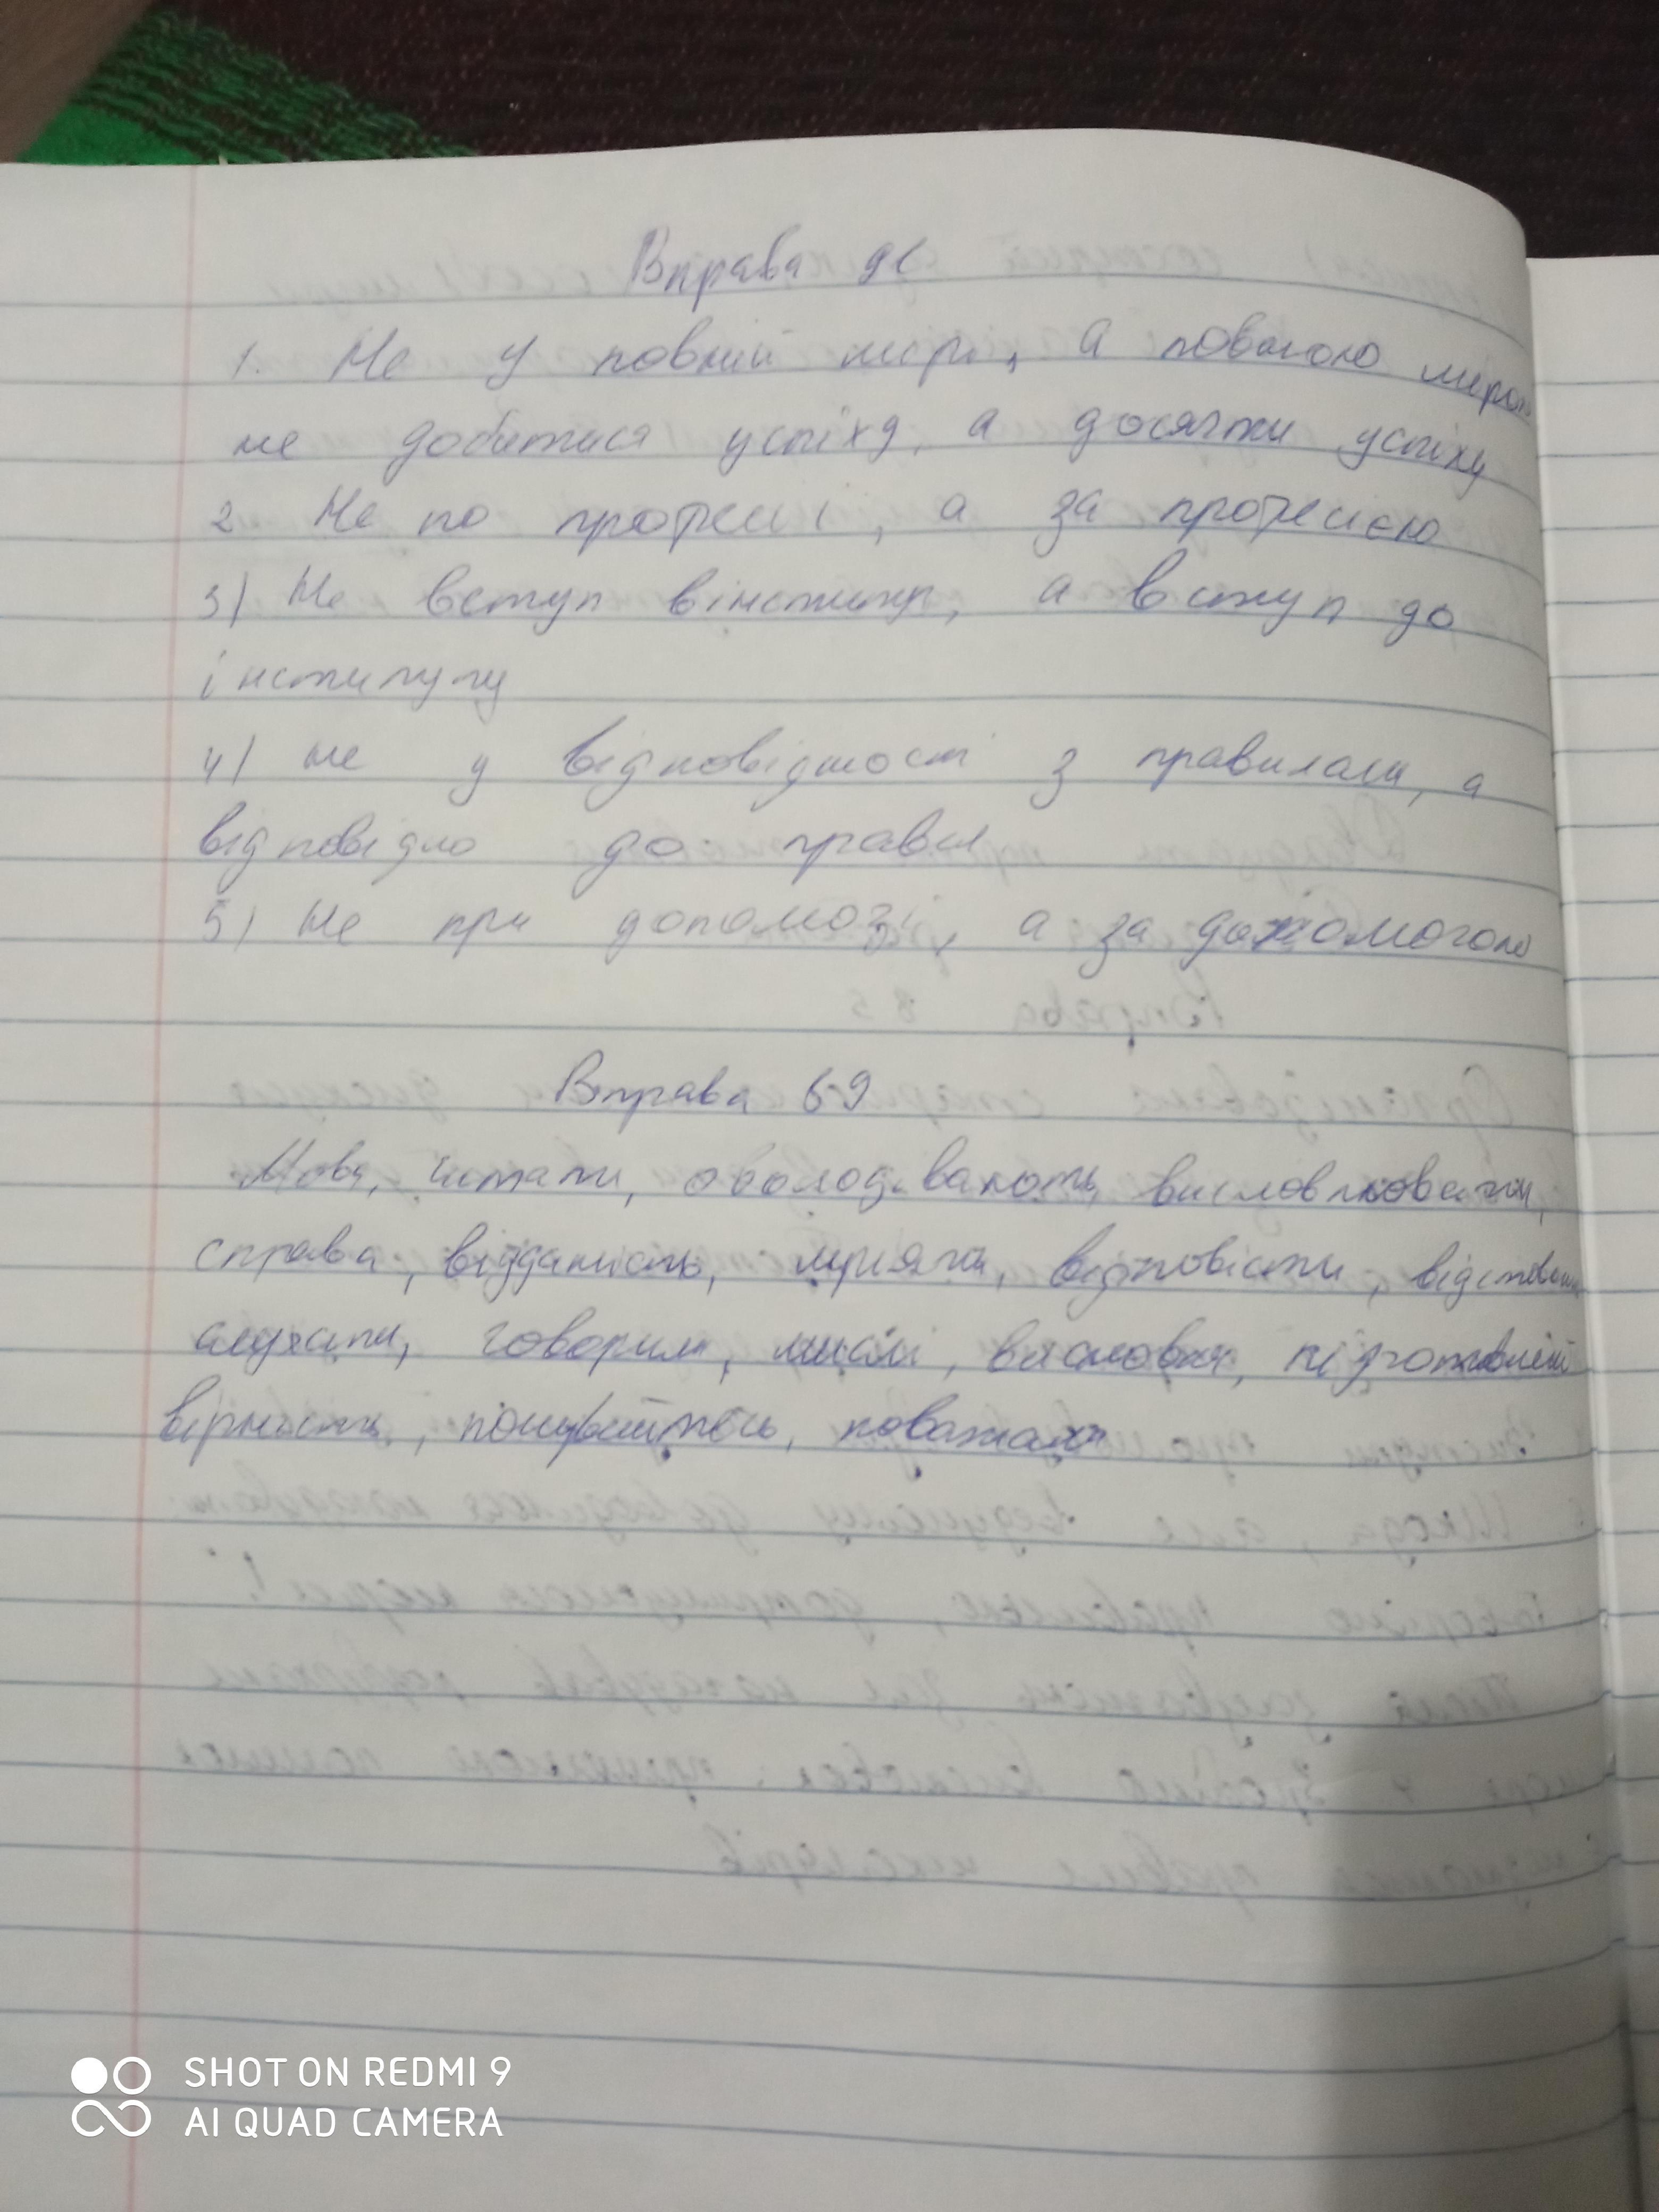 Вправа 91
1. Не у повній мірі, а повною мірою
не добитися успіху, а досягти успіху
2 Не по професії, а за професією
3) Не вступ в інститут, а вступ до
інституту
4) не у відповідності з правилами, а
відповідно до правил
5) Не при допомозі, а за допомогою
Вправа 69
Мова, читати, оволодівають, висловлювати,
справа, відданість, мріяти, відповісти,
слухати, говорити, мислі, висновки,
вірність, поважати
SHOT ON REDMI 9
AI QUAD CAMERA